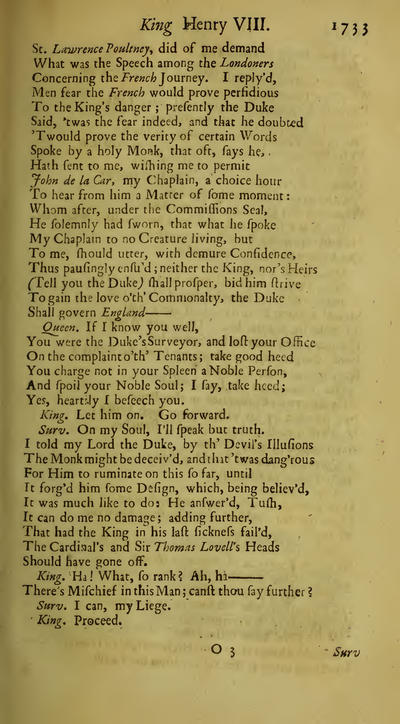 King Henry VIII. 1733
St. Lawrence Poultney, did of me demand
What was the Speech among the Londoners
Concerning the French Journey. I reply'd,
Men fear the French would prove perfidious
To the King's danger; preſently the Duke
Said, 'twas the fear indeed, and that he doubted
'Twould prove the verity of certain Words
Spoke by a holy Monk, that oft, ſays he,
Hath ſent to me, wiſhing me to permit
John de la Car, my Chaplain, a choice hour
To hear from him a Matter of ſome moment:
Whom after, under the Commiſſions Seal,
He ſolemnly had ſworn, that what he ſpoke
My Chaplain to no Creature living, but
To me, ſhould utter, with demure Confidence,
Thus pauſingly enſu'd; neither the King, nor's Heirs
(Tell you the Duke) ſhall proſper, bid him ſtrive
To gain the love o'th' Commonalty, the Duke
Shall govern England——
Queen. If I know you well,
You were the Duke's Surveyor, and loſt your Office
On the complaint o'th' Tenants; take good heed
You charge not in your Spleen a Noble Perſon,
And ſpoil your Noble Soul; I ſay, take heed;
Yes, heartily I beſeech you.
King. Let him on. Go forward.
Surv. On my Soul, I'll ſpeak but truth.
I told my Lord the Duke, by th' Devil's Illuſions
The Monk might be deceiv'd, and that 'twas dang'rous
For Him to ruminate on this ſo far, until
It forg'd him ſome Deſign, which, being believ'd,
It was much like to do: He anſwer'd, Tuſh,
It can do me no damage; adding further,
That had the King in his laſt ſickneſs fail'd,
The Cardinal's and Sir Thomas Lovell's Heads
Should have gone off.
King. Ha! What, ſo rank? Ah, ha——
There's Miſchief in this Man; canſt thou ſay further?
Surv. I can, my Liege.
King. Proceed.
O 3 Surv